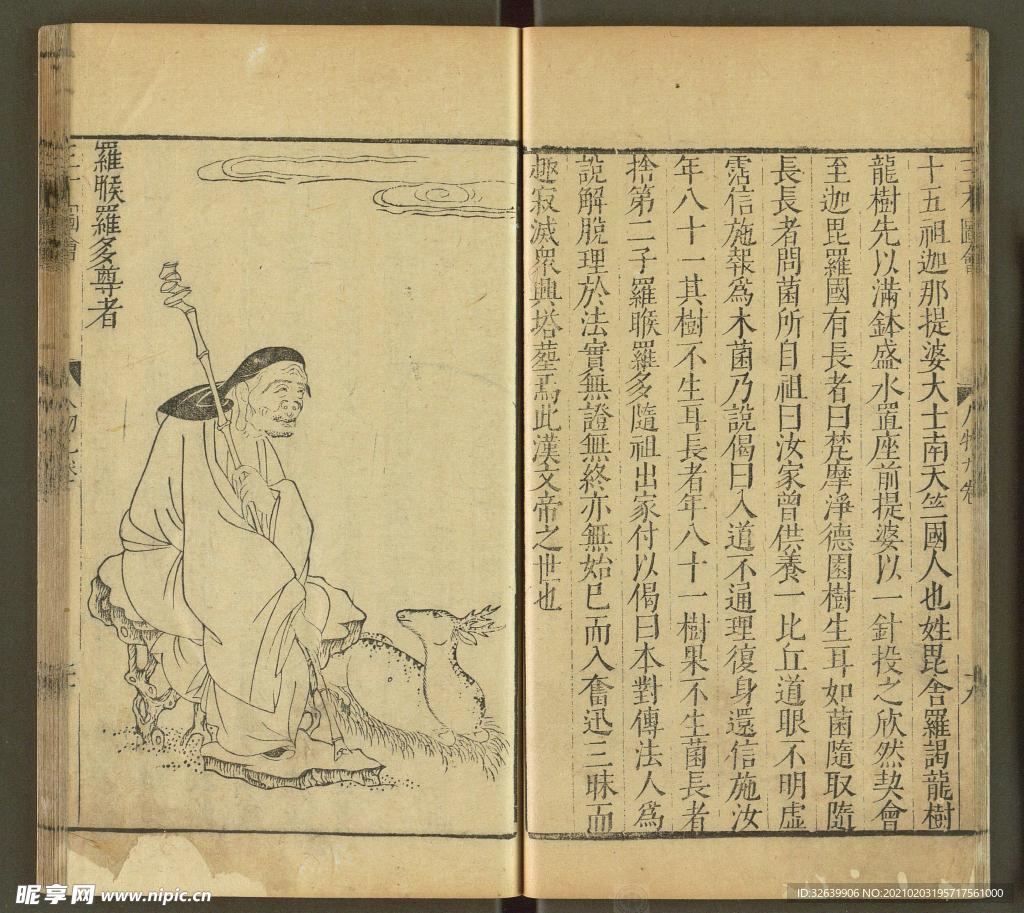 三才圖會
人物九卷
十五祖迦那提婆大士南天竺國人也姓毘舍羅謁龍樹
龍樹先以滿鉢盛水置座前提婆以一針投之欣然契會
至迦毘羅國有長者曰梵摩淨德園樹生耳如菌隨取隨
長長者問菌所自祖曰汝家曾供養一比丘道眼不明虛
霑信施報為木菌乃說偈曰入道不通理復身還信施汝
年八十一其樹不生耳長者年八十一樹果不生菌長者
捨第二子羅睺羅多隨祖出家付以偈曰本對傳法人為
說解脫理於法實無證無終亦無始巳而入奮迅三昧而
趣寂滅眾興塔塟焉此漢文帝之世也
羅睺羅多尊者
昵享网 www.nipic.cn
ID:32639906 NO:20210203195717561000